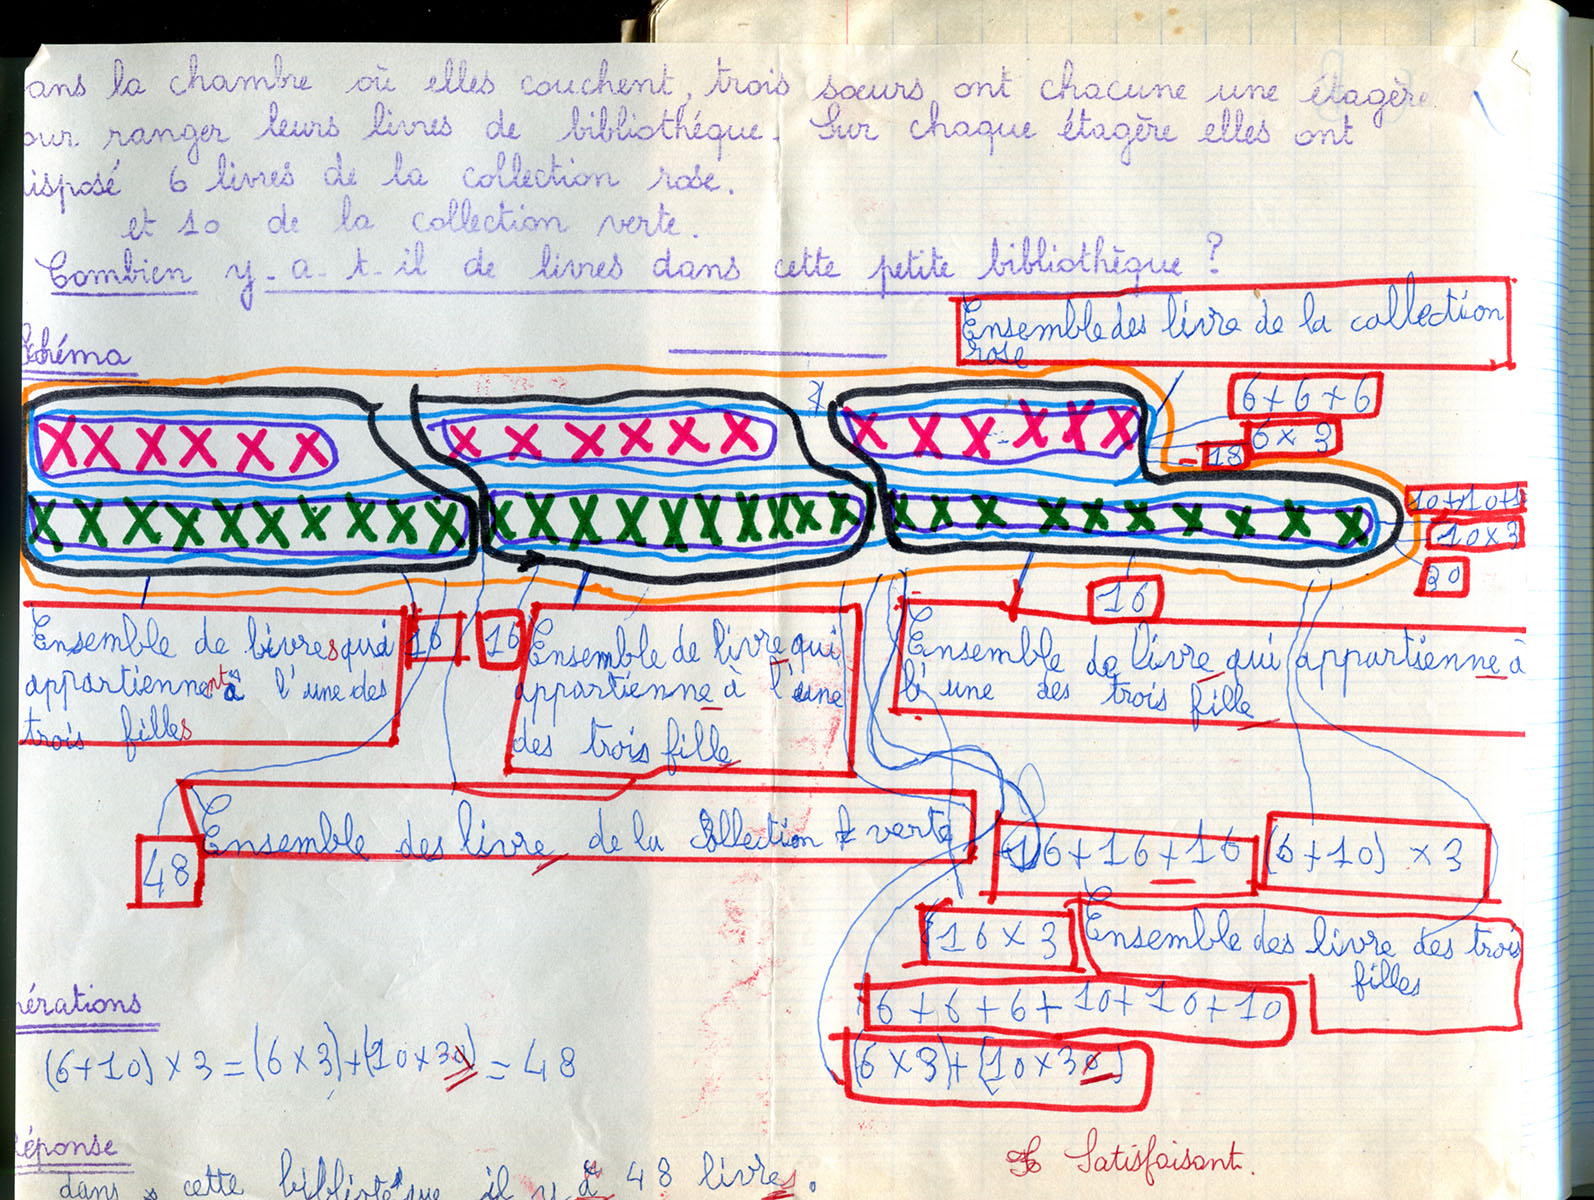 ans la chambre où elles couchent, trois sœurs ont chacune une étagère
our ranger leurs livres de bibliothéque. Sur chaque étagère elles ont
isposé 6 livres de la collection rose.
et 10 de la collection verte.
Combien y-a-t-il de livres dans cette petite bibliothèque ?
Ensemble des livre de la collection
rose
schéma
6+6+6
6 x 3
18
10+10+1
10x3
30
16
Ensemble de livres qui
appartiennent à l'une des
trois filles
16
16
Ensemble de livre qui
appartienne à l'une
des trois fille
Ensemble de livre qui appartienne à
l'une des trois fille
Ensemble des livre de la collection verte
48
16+16+16
(6+10) x 3
16 x 3
Ensemble des livre des trois
filles
6+6+6+10+10+10
(6x3)+(10x30)
érations
(6+10) x 3 = (6x3)+(10x30) = 48
éponse
dans cette il y a 48 livres.
Satisfaisant.